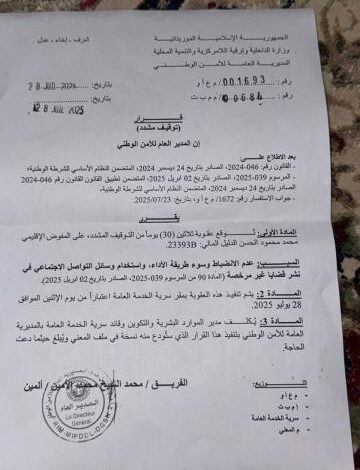 الجمهورية الإسلامية الموريتانية
شرف - إخاء - عدل
وزارة الداخلية وترقية اللامركزية والتنمية المحلية
المديرية العامة للأمن الوطني
رقم: 001693 / م ع أ و
بتاريخ: 28 JUL 2025
رقم: 00684 / م م ب ت
بتاريخ: 28 JUL 2025
قرار
(توقيف مشدد)
إن المدير العام للأمن الوطني
بعد الاطلاع على:
- القانون رقم: 046-2024، الصادر بتاريخ 24 ديسمبر 2024، المتضمن النظام الأساسي للشرطة الوطنية؛
- المرسوم 039-2025، الصادر بتاريخ 02 ابريل 2025، المتضمن تطبيق القانون رقم 046-2024
الصادر بتاريخ 24 ديسمبر 2024، المتضمن النظام الأساسي للشرطة الوطنية.
- جواب الاستفسار رقم: 1672/ م ع و، الصادر بتاريخ: 2025/07/23.
يقرر
المادة الأولى: تُوقع عقوبة ثلاثين (30) يوما من التوقيف المشدد، على المفوض الإقليمي
محمد محمود الحسن الدليل المالي: 23393B.
السبب: عدم الانضباط وسوء طريقة الأداء، واستخدام وسائل التواصل الاجتماعي في
نشر قضايا غير مرخصة (المادة 90 من المرسوم 039-2025، الصادر بتاريخ 02 ابريل 2025).
المادة 2: يتم تنفيذ هذه العقوبة بمقر سرية الخدمة العامة اعتبارا من يوم الإثنين الموافق
28 يوليو 2025.
المادة 3: يُكلف مدير الموارد البشرية والتكوين وقائد سرية الخدمة العامة بالمديرية
العامة للأمن الوطني بتنفيذ هذا القرار الذي ستُودع منه نسخة في ملف المعني ويُبلغ حيثما دعت
الحاجة.
الفريق / محمد الشيخ محمد الأمين / ألمين
التوزيع:
- م ع أ و
- إ م ب ت
- سرية الخدمة العامة
- م المعني
المدير العام
Le Directeur
Général
RIM-MIPDDL-DGSN